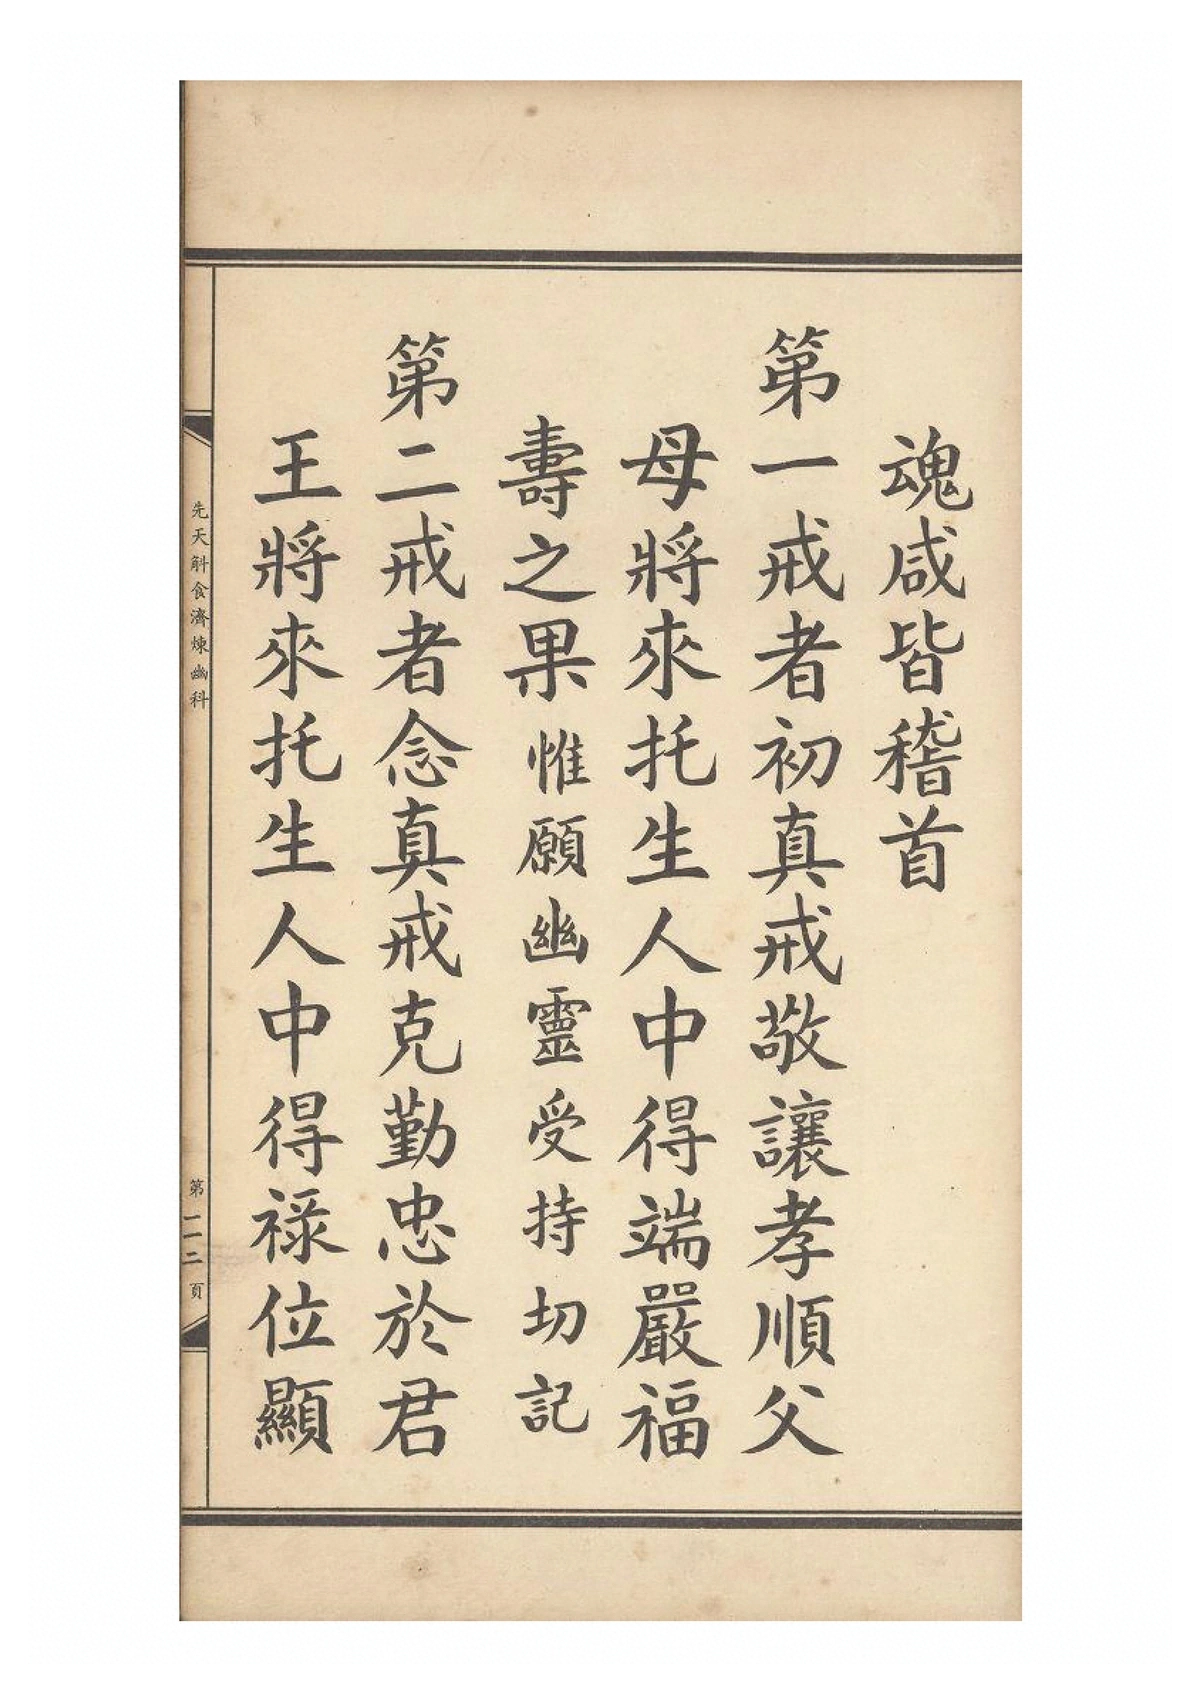 魂咸皆稽首
第一戒者初真戒敬讓孝順父
母將來托生人中得端嚴福
壽之果惟願幽靈受持切記
第二戒者念真戒克勤忠於君
王將來托生人中得祿位顯
先天斛食濟煉幽科
第二二頁